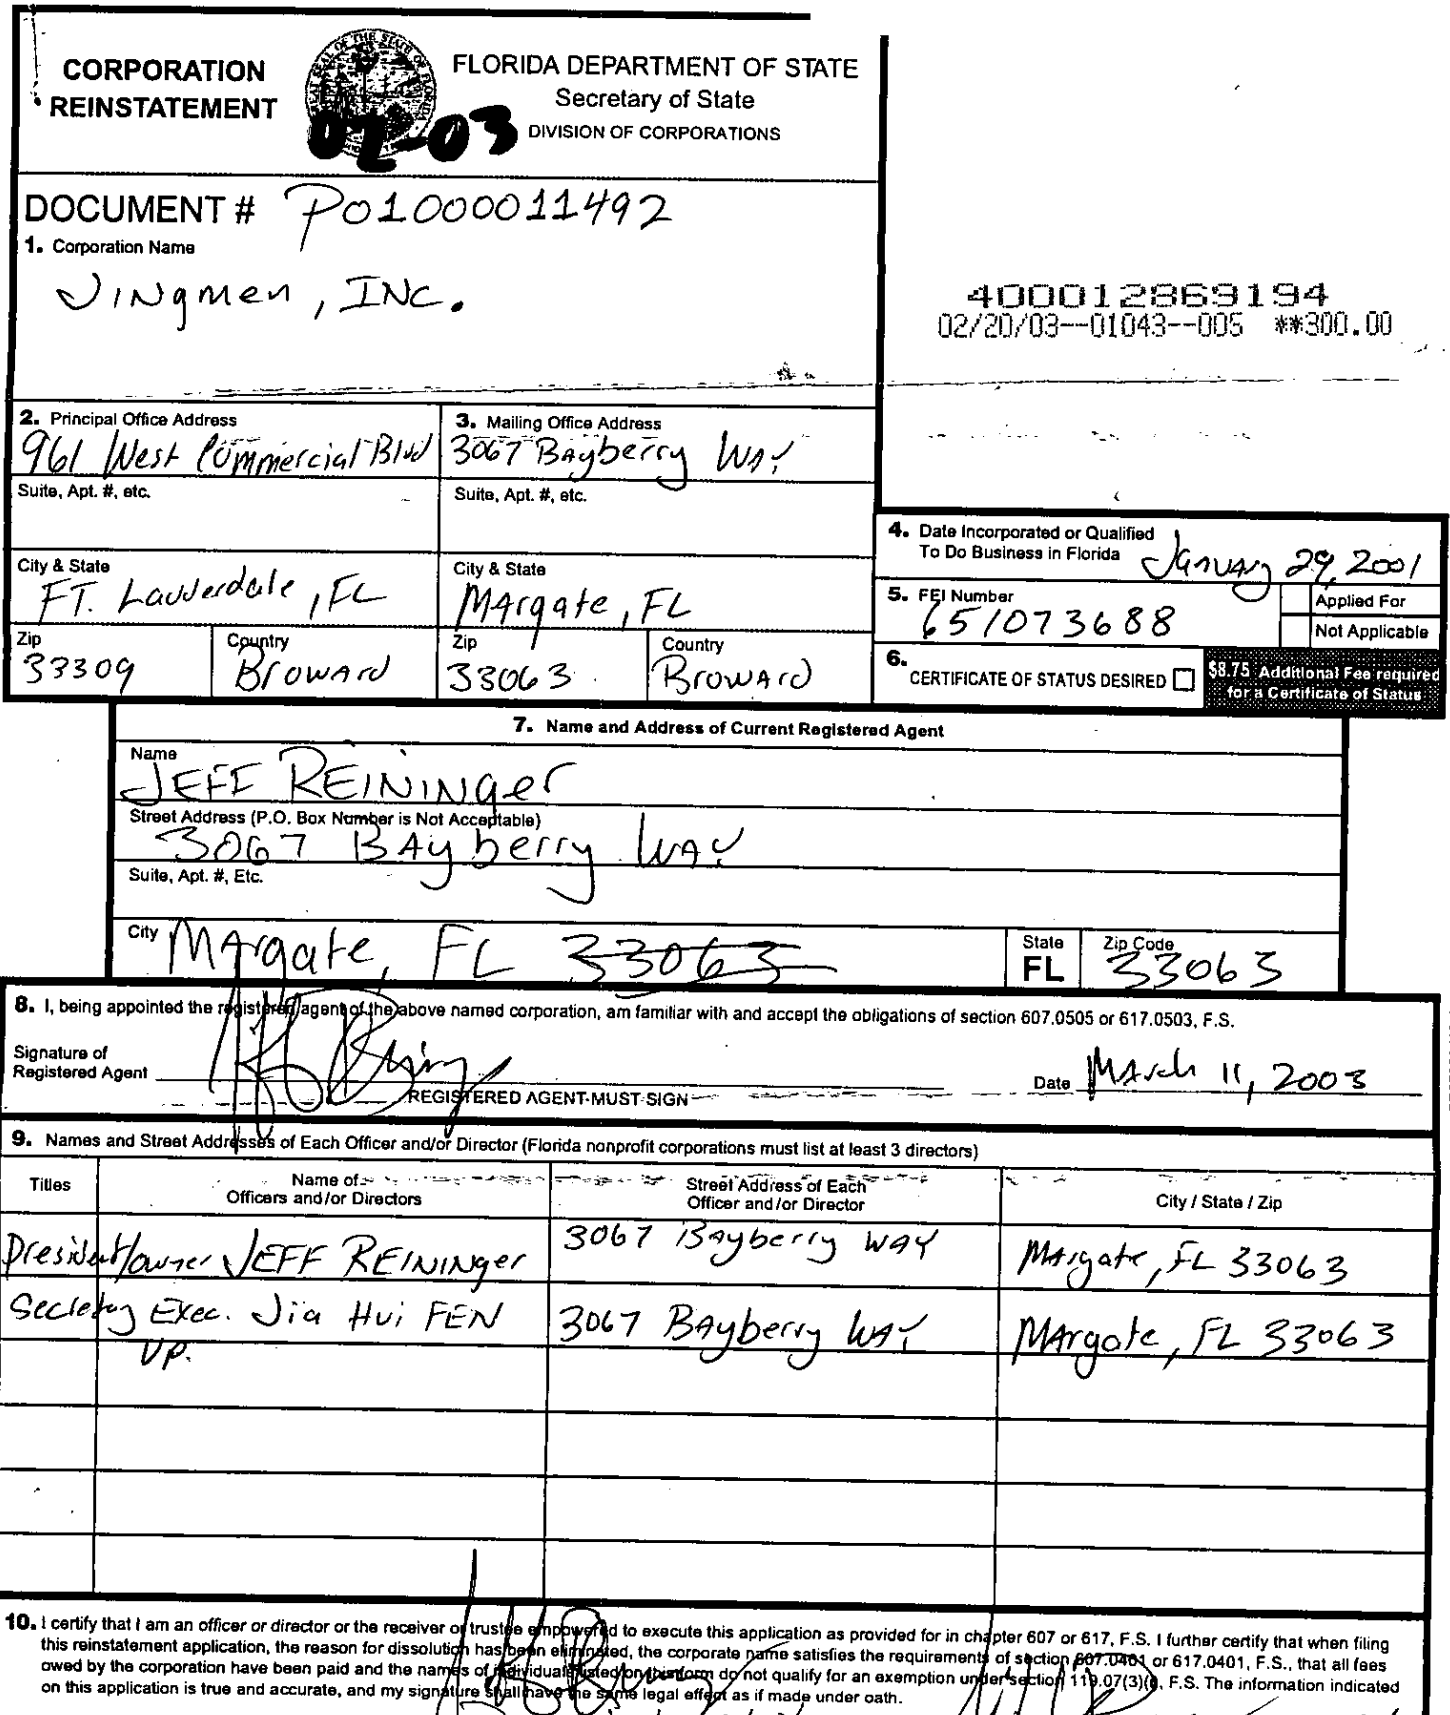 CORPORATION
REINSTATEMENT
FLORIDA DEPARTMENT OF STATE
Secretary of State
DIVISION OF CORPORATIONS
02-03
DOCUMENT # P01000011492
1. Corporation Name
JINgmen, INC.
400012869194
02/20/03--01043--005 **300.00
2. Principal Office Address
961 West Commercial Blvd
3. Mailing Office Address
3067 Bayberry WAY
Suite, Apt. #, etc.
Suite, Apt. #, etc.
4. Date Incorporated or Qualified
To Do Business in Florida January 29, 2001
City & State
FT. Lauderdale, FL
City & State
MArgate, FL
5. FEI Number
651073688
Applied For
Not Applicable
Zip
33309
Country
BrowArd
Zip
33063
Country
BrowArd
6. CERTIFICATE OF STATUS DESIRED
$8.75 Additional Fee required
for a Certificate of Status
7. Name and Address of Current Registered Agent
Name
JEFF REININger
Street Address (P.O. Box Number is Not Acceptable)
3067 BAyberry WAY
Suite, Apt. #, Etc.
City MArgate, FL 33063
State
FL
Zip Code
33063
8. I, being appointed the registered agent of the above named corporation, am familiar with and accept the obligations of section 607.0505 or 617.0503, F.S.
Signature of
Registered Agent
Date MArch 11, 2003
REGISTERED AGENT MUST SIGN
9. Names and Street Addresses of Each Officer and/or Director (Florida nonprofit corporations must list at least 3 directors)
Titles
Name of
Officers and/or Directors
Street Address of Each
Officer and/or Director
City / State / Zip
President/owner JEFF REININger 3067 Bayberry WAY MArgate, FL 33063
Secretary Exec. Jia Hui FEN 3067 BAyberry WAY MArgate, FL 33063
VP.
10. I certify that I am an officer or director or the receiver or trustee empowered to execute this application as provided for in chapter 607 or 617, F.S. I further certify that when filing
this reinstatement application, the reason for dissolution has been eliminated, the corporate name satisfies the requirements of section 607.0401 or 617.0401, F.S., that all fees
owed by the corporation have been paid and the names of individuals listed on this form do not qualify for an exemption under section 119.07(3)(i), F.S. The information indicated
on this application is true and accurate, and my signature shall have the same legal effect as if made under oath.